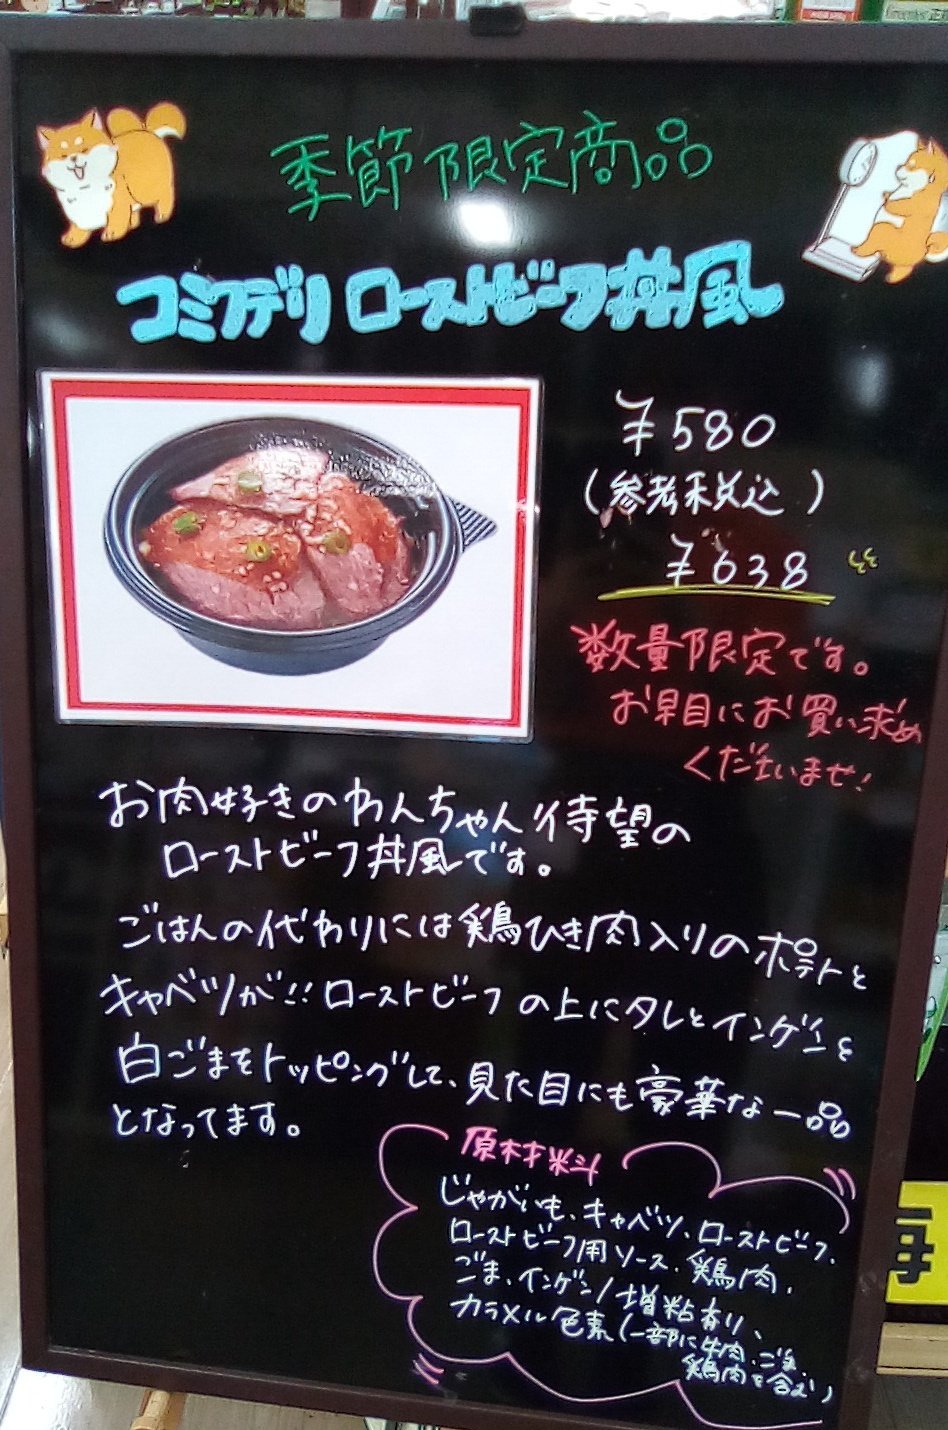 季節限定商品
コミフデリ ローストビーフ丼風
¥580
(参考税込)
¥638
数量限定です。
お早目にお買い求め
くださいませ!
お肉好きのわんちゃん待望の
ローストビーフ丼風です。
ごはんの代わりには鶏ひき肉入りのポテトと
キャベツが!!ローストビーフの上にタレとインゲンと
白ごまをトッピングして、見た目にも豪華な一品
となってます。
原材料
じゃがいも、キャベツ、ローストビーフ、
ローストビーフ用ソース、鶏肉、
ごま、インゲン/増粘剤、
カラメル色素(一部に牛肉、ごま、
鶏肉を含む)
毎